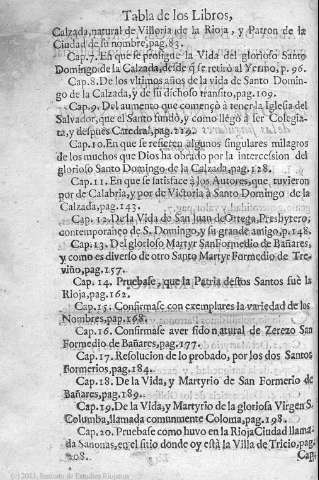 Tabla de los Libros,
Calzada, natural de Villoria de la Rioja, y Patron de la
Ciudad de su nombre, pag.83.
Cap.7. En que se prosigue la Vida del glorioso Santo
Domingo de la Calzada, desde q̃ se retirò al Yermo, p.96.
Cap.8. De los vltimos años de la vida de Santo Domin-
go de la Calzada, y de su dichoso transito, pag.109.
Cap.9. Del aumento que començò à tener la Iglesia del
Salvador, que el Santo fundò, y como llegò à ser Colegia-
ta, y despues Catedral, pag.119.
Cap.10. En que se refieren algunos singulares milagros
de los muchos que Dios ha obrado por la intercession del
glorioso Santo Domingo de la Calzada, pag.128.
Cap.11. En que se satisface à los Autores, que tuvieron
por de Calabria, y por de Victoria à Santo Domingo de la
Calzada, pag.143.
Cap.12. De la Vida de San Juan de Ortega, Presbytero,
contemporaneo de S. Domingo, y su grande amigo, p.148.
Cap.13. Del glorioso Martyr San Formedio de Bañares,
y como es diverso de otro Santo Martyr Formedio de Tre-
viño, pag.157.
Cap.14. Pruebase, que la Patria destos Santos fuè la
Rioja, pag.162.
Cap.15. Confirmase con exemplares la variedad de los
Nombres, pap.168.
Cap.16. Confirmase aver sido natural de Zerezo San
Formedio de Bañares, pag.177.
Cap.17. Resolucion de lo probado, por los dos Santos
Formerios, pag.184.
Cap.18. De la Vida, y Martyrio de San Formerio de
Bañares, pag.189.
Cap.19. De la Vida, y Martyrio de la gloriosa Virgen S.
Columba, llamada comunmente Coloma, pag.198.
Cap.20. Pruebase como huvo en la Rioja Ciudad llama-
da Sanonas, en el sitio donde oy està la Villa de Tricio, pag.
208. Cap.
(c) 2011, Instituto de Estudios Riojanos